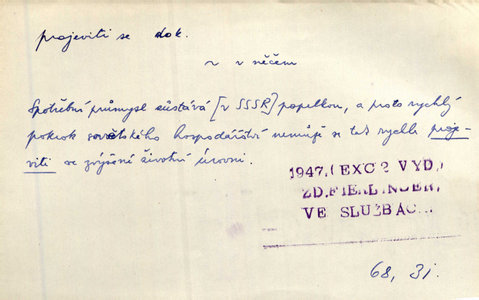 projeviti se dok.
~ v něčem
Spotřební průmysl zůstává [v SSSR] popelkou, a proto rychlý
pokrok sovětského hospodářství nemůže se tak rychle proje-
viti ve zvýšení životní úrovni.
1947, (EXC 2 VYD.)
ZD. FIERLINGER,
VE SLUŽBÁCH...
68, 31.